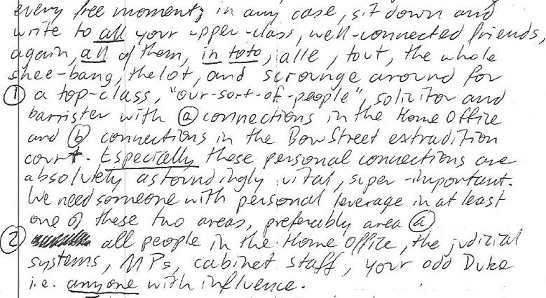 every free moment, in any case, sit down and
write to all your upper-class, well-connected friends,
again, all of them, in toto, alle, tout, the whole
shee-bang, the lot, and scrounge around for
① a top-class, "our-sort-of-people", solicitor and
barrister with ⓐ connections in the Home Office
and ⓑ connections in the Bow Street extradition
court. Especially these personal connections are
absolutely astoundingly vital, super-important.
We need someone with personal leverage in at least
one of these two areas, preferably area ⓐ
② all people in the Home Office, the judicial
systems, MPs, cabinet staff, your odd Duke
i.e. anyone with influence.